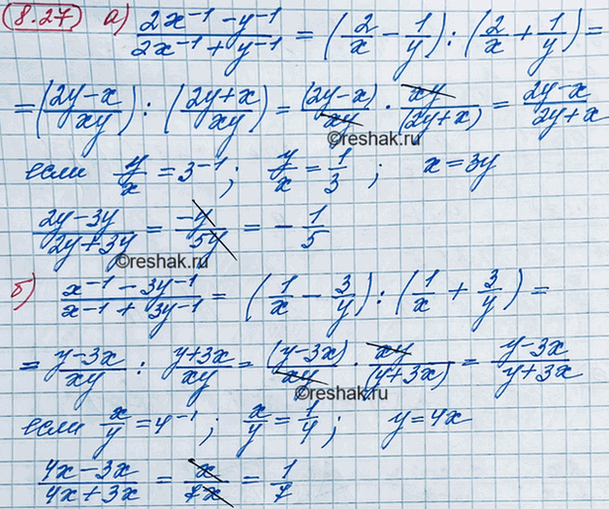 8.27) а) (2x⁻¹ - y⁻¹)/(2x⁻¹ + y⁻¹) = (2/x - 1/y) : (2/x + 1/y) =
= ((2y-x)/xy) : ((2y+x)/xy) = (2y-x)/xy · xy/(2y+x) = (2y-x)/(2y+x)
©reshak.ru
если y/x = 3⁻¹; y/x = 1/3; x = 3y
(2y-3y)/(2y+3y) = -y/5y = -1/5
©reshak.ru
б) (x⁻¹ - 3y⁻¹)/(x⁻¹ + 3y⁻¹) = (1/x - 3/y) : (1/x + 3/y) =
= (y-3x)/xy : (y+3x)/xy = (y-3x)/xy · xy/(y+3x) = (y-3x)/(y+3x)
©reshak.ru
если x/y = 4⁻¹; x/y = 1/4; y = 4x
(4x-3x)/(4x+3x) = x/7x = 1/7